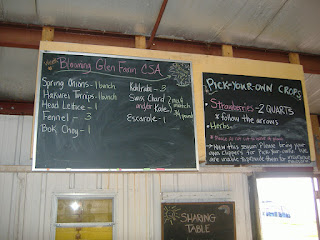 Blooming Glen Farm CSA
Spring Onions - 1 bunch
Hakurei Turnips - 1 bunch
Head Lettuce - 1
Fennel - 3
Bok Choy - 1
Kohlrabi - 3
Swiss Chord
and/or Kale
mix &
match
3/4 pound
Escarole - 1
PICK-YOUR-OWN CROPS
• Strawberries - 2 QUARTS
* follow the arrows
• Herbs
New this season: Please bring your
own clippers for Pick-your-owns. We
are unable to provide them for
SHARING
TABLE